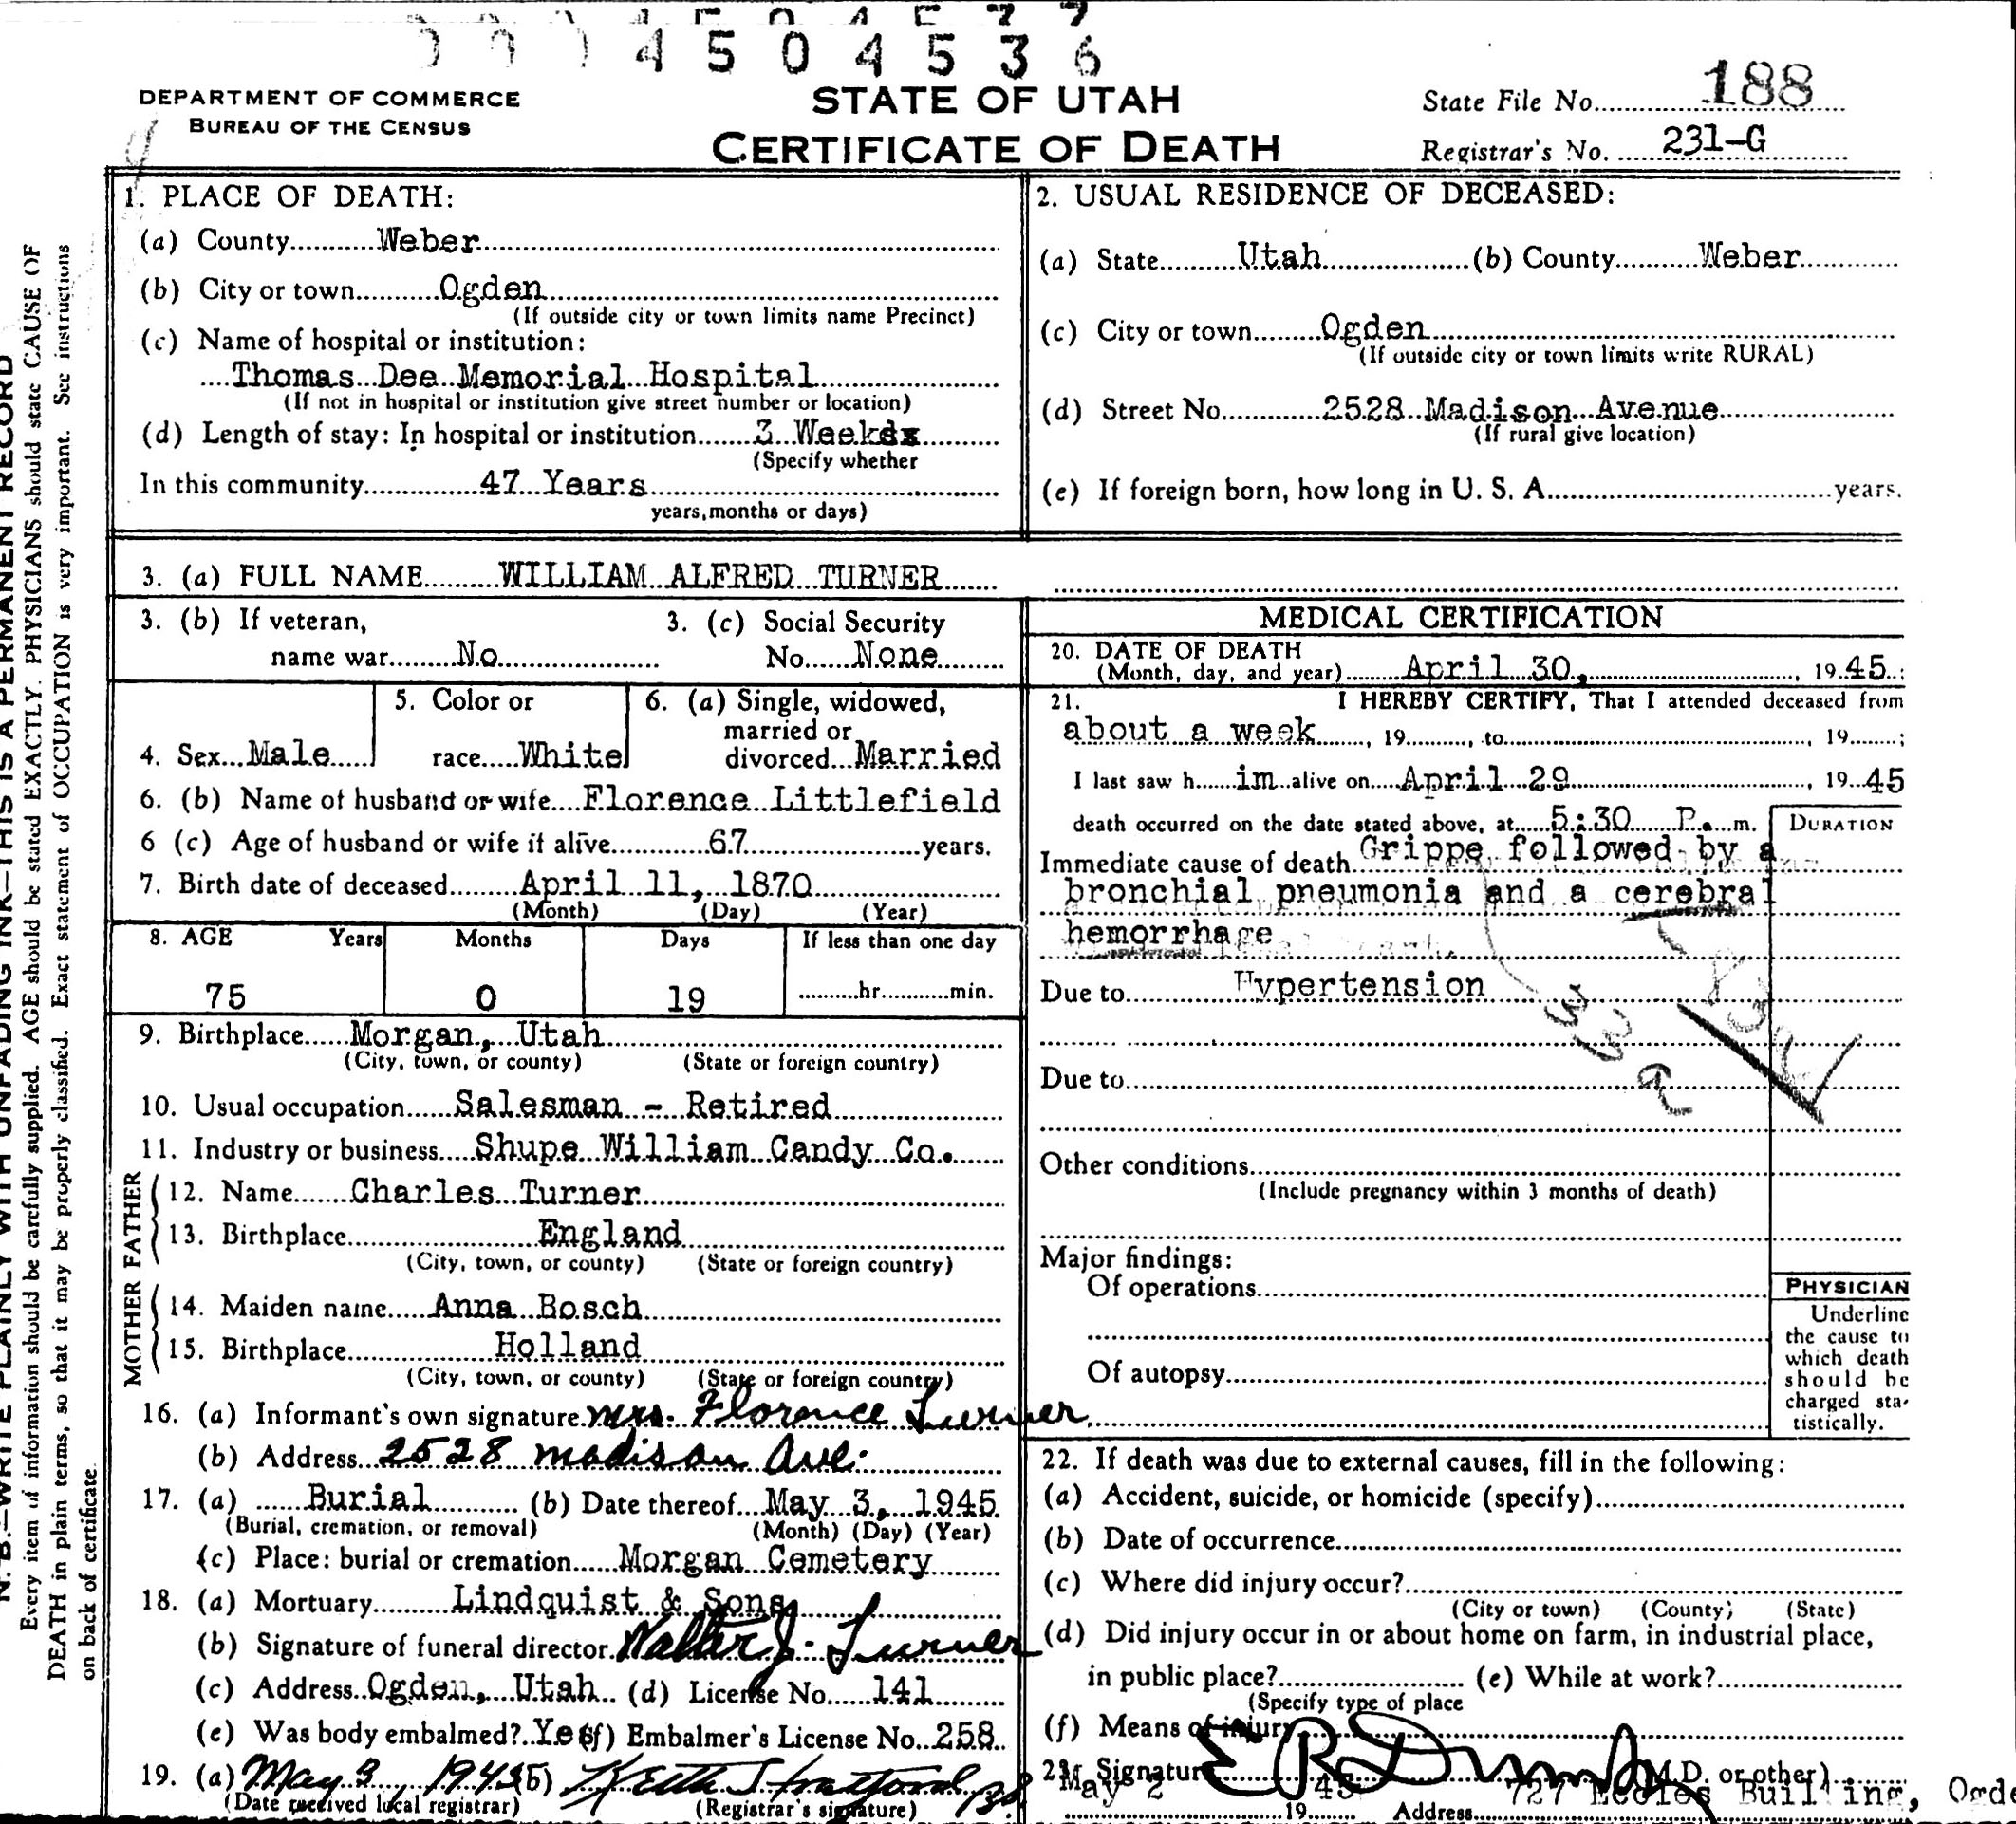 4 5 0 4 5 3 6
DEPARTMENT OF COMMERCE
BUREAU OF THE CENSUS
STATE OF UTAH
CERTIFICATE OF DEATH
State File No. 188
Registrar's No. 231-G
N. B.—WRITE PLAINLY WITH UNFADING INK—THIS IS A PERMANENT RECORD
Every item of information should be carefully supplied. AGE should be stated EXACTLY. PHYSICIANS should state CAUSE OF
DEATH in plain terms, so that it may be properly classified. Exact statement of OCCUPATION is very important. See instructions
on back of certificate.
1. PLACE OF DEATH:
(a) County Weber
(b) City or town Ogden
(If outside city or town limits name Precinct)
(c) Name of hospital or institution:
Thomas Dee Memorial Hospital
(If not in hospital or institution give street number or location)
(d) Length of stay: In hospital or institution 3 Weeks
(Specify whether
In this community 47 Years
years, months or days)
2. USUAL RESIDENCE OF DECEASED:
(a) State Utah (b) County Weber
(c) City or town Ogden
(If outside city or town limits write RURAL)
(d) Street No. 2528 Madison Avenue
(If rural give location)
(e) If foreign born, how long in U. S. A. years.
3. (a) FULL NAME WILLIAM ALFRED TURNER
3. (b) If veteran,
name war No
3. (c) Social Security
No. None
4. Sex Male
5. Color or
race White
6. (a) Single, widowed,
married or
divorced Married
6. (b) Name of husband or wife Florence Littlefield
6 (c) Age of husband or wife if alive 67 years.
7. Birth date of deceased April 11, 1870
(Month) (Day) (Year)
8. AGE Years Months Days If less than one day
75 0 19 hr. min.
9. Birthplace Morgan, Utah
(City, town, or county) (State or foreign country)
10. Usual occupation Salesman - Retired
11. Industry or business Shupe William Candy Co.
FATHER
12. Name Charles Turner
13. Birthplace England
(City, town, or county) (State or foreign country)
MOTHER
14. Maiden name Anna Bosch
15. Birthplace Holland
(City, town, or county) (State or foreign country)
16. (a) Informant's own signature Mrs. Florence Turner
(b) Address 2528 Madison Ave.
17. (a) Burial (b) Date thereof May 3, 1945
(Burial, cremation, or removal) (Month) (Day) (Year)
(c) Place: burial or cremation Morgan Cemetery
18. (a) Mortuary Lindquist & Sons
(b) Signature of funeral director Walter J. Turner
(c) Address Ogden, Utah (d) License No. 141
(e) Was body embalmed? Yes (f) Embalmer's License No. 258
19. (a) May 3, 1945 (b) Keith Stratford
(Date received local registrar) (Registrar's signature)
MEDICAL CERTIFICATION
20. DATE OF DEATH
(Month, day, and year) April 30, , 1945
21. I HEREBY CERTIFY, That I attended deceased from
about a week , 19 , to , 19 ;
I last saw h im alive on April 29 , 1945
death occurred on the date stated above, at 5:30 P. m.
DURATION
Immediate cause of death Grippe followed by a
bronchial pneumonia and a cerebral
hemorrhage
Due to Hypertension
33a
Due to
Other conditions
(Include pregnancy within 3 months of death)
Major findings:
Of operations
Of autopsy
PHYSICIAN
Underline
the cause to
which death
should be
charged sta-
tistically.
22. If death was due to external causes, fill in the following:
(a) Accident, suicide, or homicide (specify)
(b) Date of occurrence
(c) Where did injury occur?
(City or town) (County) (State)
(d) Did injury occur in or about home on farm, in industrial place,
in public place? (e) While at work?
(Specify type of place
(f) Means of injury
23. Signature (M.D. or other)
May 2 19 45 Address 727 Eccles Building, Ogde